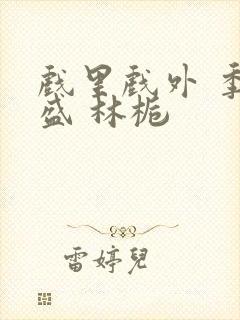 戲里戲外 季
盛 林栀
雷婷兒